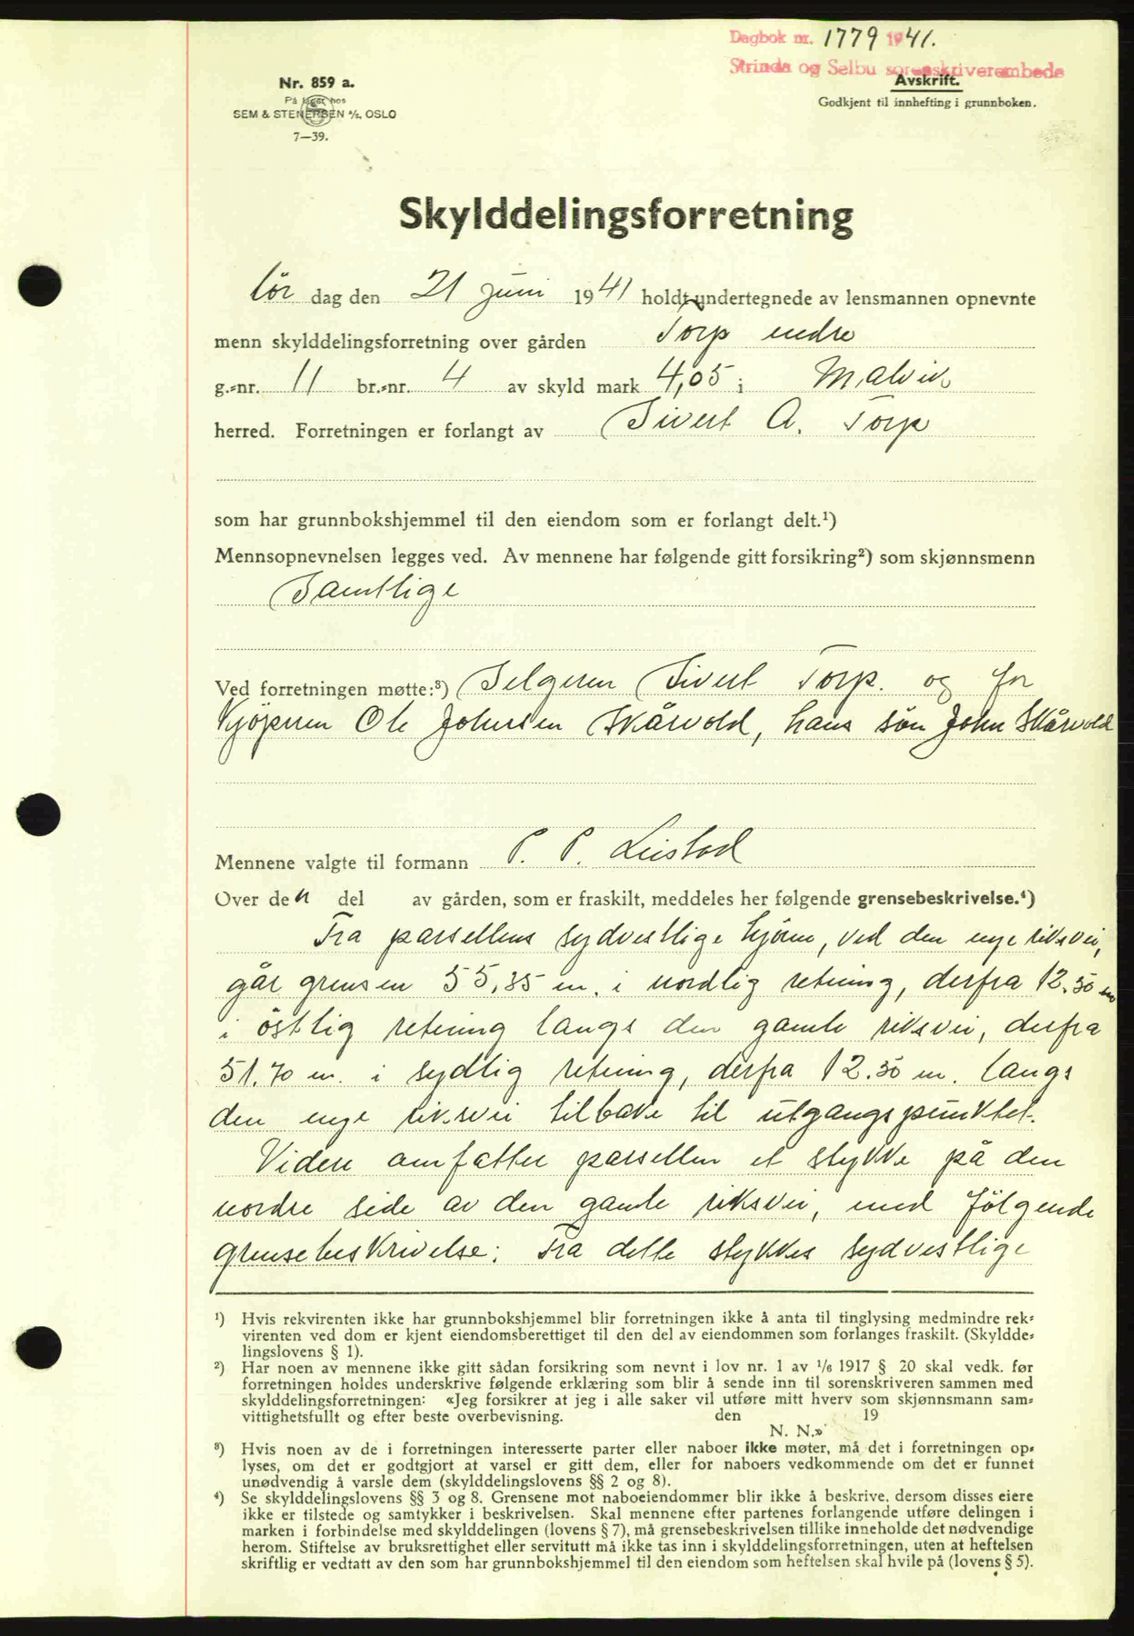 Dagbok nr. 1779 1941.
Strinda og Selbu sorenskriverembede
Nr. 859 a.
På lager hos
SEM & STENERSEN A/S, OSLO
7—39.
Avskrift.
Godkjent til innhefting i grunnboken.
Skylddelingsforretning
lör dag den 21 juni 1941 holdt undertegnede av lensmannen opnevnte
menn skylddelingsforretning over gården Torp nedre
g.-nr. 11 br.-nr. 4 av skyld mark 4,05 i Malvik
herred. Forretningen er forlangt av Sivert A. Torp
som har grunnbokshjemmel til den eiendom som er forlangt delt.¹)
Mennsopnevnelsen legges ved. Av mennene har følgende gitt forsikring²) som skjønnsmenn
Samtlige
Ved forretningen møtte:³) Selgeren Sivert Torp. og for
Kjöperen Ole Johnsen Skårvold, hans sön John Skårvold
Mennene valgte til formann P. P. Leistad
Over den del av gården, som er fraskilt, meddeles her følgende grensebeskrivelse.⁴)
Fra parsellens sydvestlige hjörne, ved den nye riksvei,
går grensen 55,35 m. i nordlig retning, derfra 12.50 m
i östlig retning langs den gamle riksvei, derfra
51.70 m. i sydlig retning, derfra 12.50 m. langs
den nye riksvei tilbake til utgangspunktet.
Videre omfatter parsellen et stykke på den
nordre side av den gamle riksvei, med fölgende
grensebeskrivelse: Fra dette stykkes sydvestlige
¹) Hvis rekvirenten ikke har grunnbokshjemmel blir forretningen ikke å anta til tinglysing medmindre rek-
virenten ved dom er kjent eiendomsberettiget til den del av eiendommen som forlanges fraskilt. (Skyldde-
lingslovens § 1).
²) Har noen av mennene ikke gitt sådan forsikring som nevnt i lov nr. 1 av 1/6 1917 § 20 skal vedk. før
forretningen holdes underskrive følgende erklæring som blir å sende inn til sorenskriveren sammen med
skylddelingsforretningen: «Jeg forsikrer at jeg i alle saker vil utføre mitt hverv som skjønnsmann sam-
vittighetsfullt og efter beste overbevisning. den 19
N. N.»
³) Hvis noen av de i forretningen interesserte parter eller naboer ikke møter, må det i forretningen op-
lyses, om det er godtgjort at varsel er gitt dem, eller for naboers vedkommende om det er funnet
unødvendig å varsle dem (skylddelingslovens §§ 2 og 8).
⁴) Se skylddelingslovens §§ 3 og 8. Grensene mot naboeiendommer blir ikke å beskrive, dersom disses eiere
ikke er tilstede og samtykker i beskrivelsen. Skal mennene efter partenes forlangende utføre delingen i
marken i forbindelse med skylddelingen (lovens § 7), må grensebeskrivelsen tillike inneholde det nødvendige
herom. Stiftelse av bruksrettighet eller servitutt må ikke tas inn i skylddelingsforretningen, uten at heftelsen
skriftlig er vedtatt av den som har grunnbokshjemmel til den eiendom som heftelsen skal hvile på (lovens § 5).